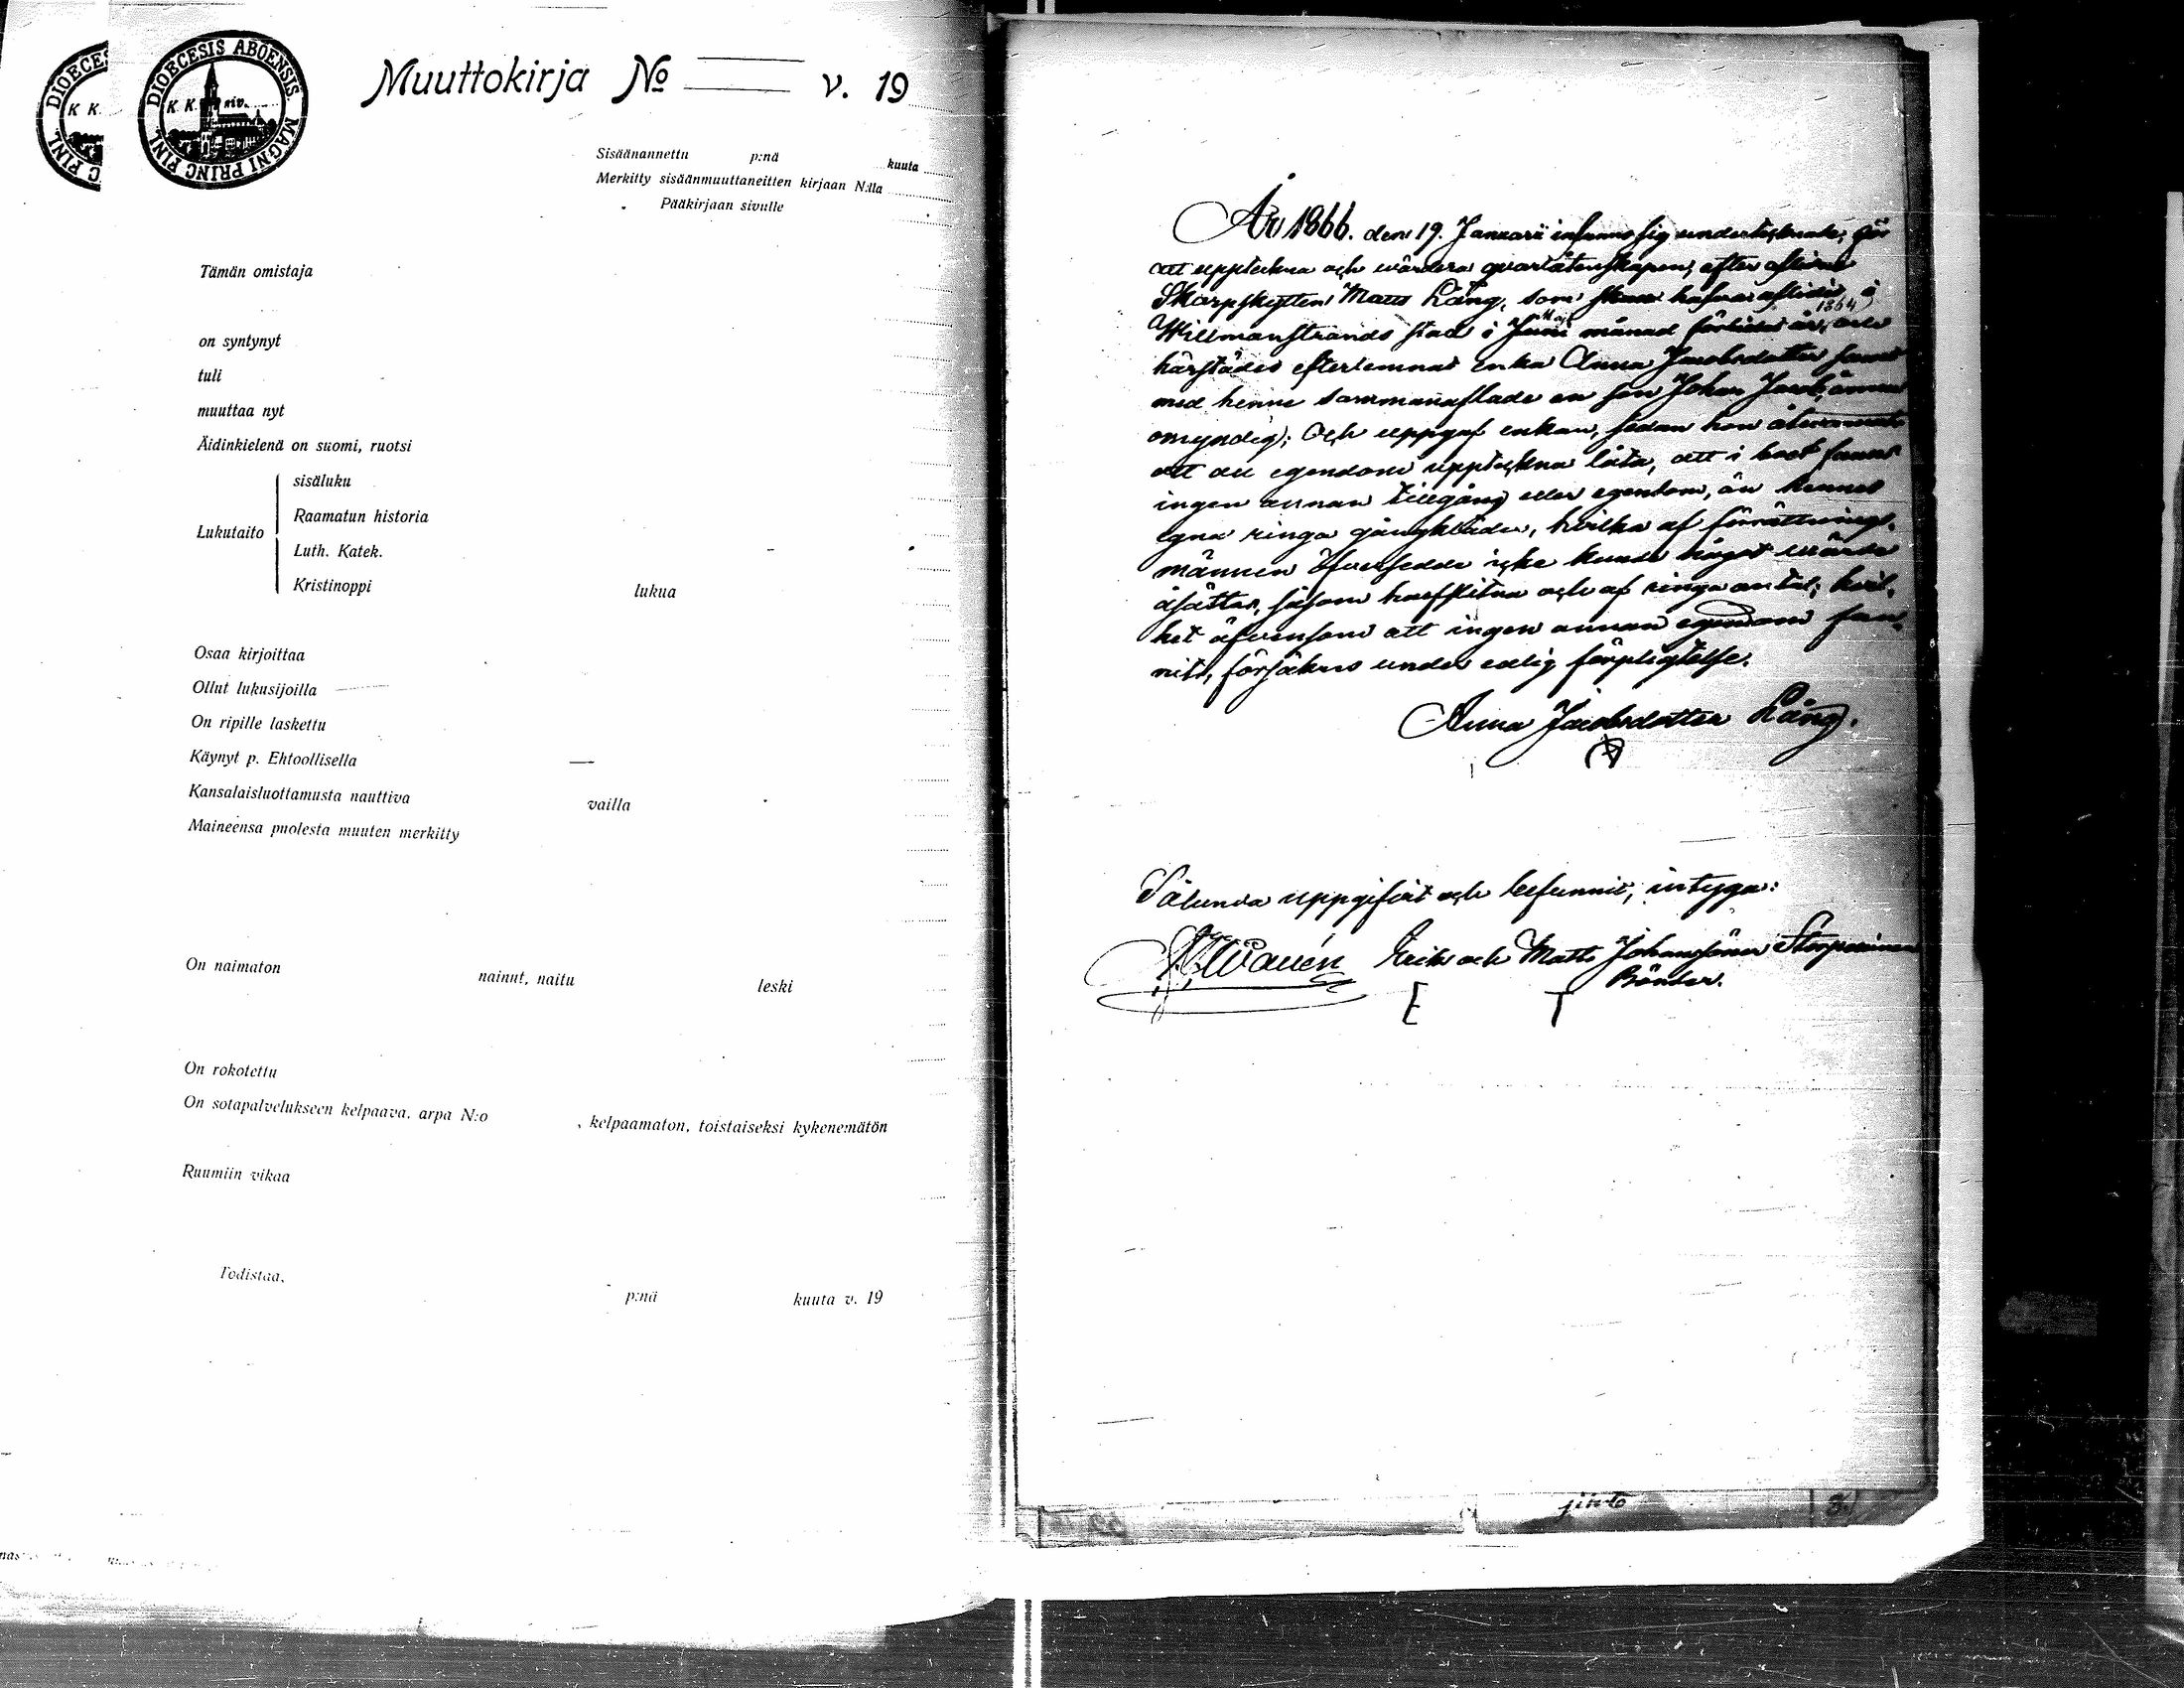 DIOECESIS ABOENSIS MAGNI PRINC FINL
K K. siv.
Muuttokirja No v. 19
Sisäänannettu p:nä kuuta
Merkitty sisäänmuuttaneitten kirjaan N:lla
Pääkirjaan sivulle
Tämän omistaja
on syntynyt
tuli
muuttaa nyt
Äidinkielenä on suomi, ruotsi
Lukutaito
sisäluku
Raamatun historia
Luth. Katek.
Kristinoppi lukua
Osaa kirjoittaa
Ollut lukusijoilla
On ripille laskettu
Käynyt p. Ehtoollisella
Kansalaisluottamusta nauttiva vailla
Maineensa puolesta muuten merkitty
On naimaton nainut, naitu leski
On rokotettu
On sotapalvelukseen kelpaava, arpa N:o , kelpaamaton, toistaiseksi kykenemätön
Ruumiin vikaa
Todistaa,
p:nä kuuta v. 19
År 1866. den 19. Januarii infunno sig undertecknade, för
att uppteckna och wärdera qvarlåtenskapen, efter aflidne
Skarpskytten Matts Lång, som hafva aflidit i
Willmanstrands stad i Maj månad förlidet år, 1864 och
härstädes efterlemnat enka Anna Jacobsdotter samt
med henne sammanaflade en son Johan Jacob, ännu
omyndig; Och uppgaf enkan, sedan hon
att all egendom uppteckna låta, att i boet fanns
ingen annan tillgång eller egendom, än hennes
egna ringa gångkläder, hvilka af förrättnings-
männen öfversedde icke kunde något wärde
åsättas, såsom och af ringa antal; hvil-
ket äfvensom att ingen annan egendom fun-
nits, försäkras under edlig förpligtelse.
Anna Jacobsdotter Lång.
Sålunda uppgifvit och befunnit, intyga:
Erik och Matts Johanssöner
Bönder.
E T